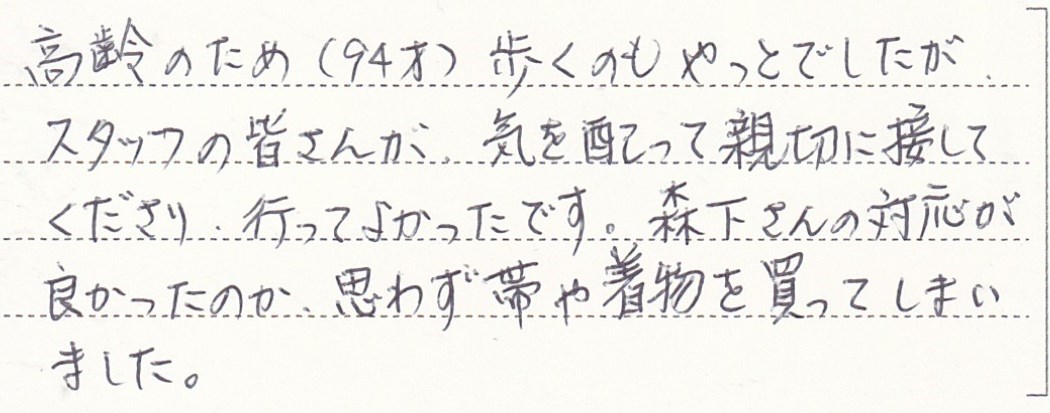 高齢のため(94才)歩くのもやっとでしたが、
スタッフの皆さんが、気を配って親切に接して
くださり、行ってよかったです。森下さんの対応が
良かったのか、思わず帯や着物を買ってしまい
ました。